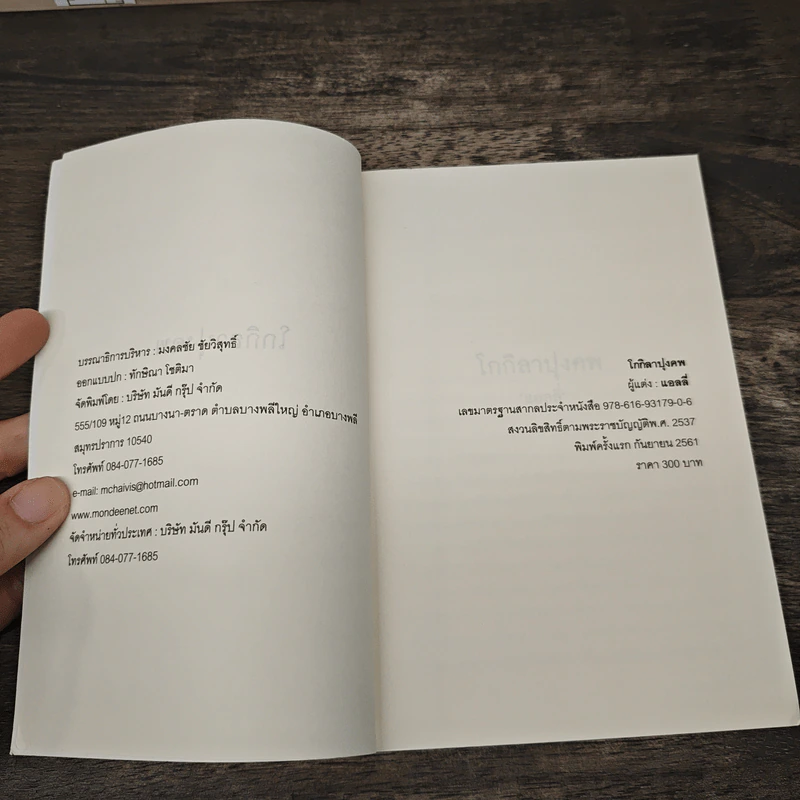 บรรณาธิการบริหาร : มงคลชัย ชัยวิสุทธิ์
ออกแบบปก : ทักษิณา โชติมา
จัดพิมพ์โดย : บริษัท มันดี กรุ๊ป จำกัด
555/109 หมู่12 ถนนบางนา-ตราด ตำบลบางพลีใหญ่ อำเภอบางพลี
สมุทรปราการ 10540
โทรศัพท์ 084-077-1685
e-mail: mchaivis@hotmail.com
www.mondeenet.com
จัดจำหน่ายทั่วประเทศ : บริษัท มันดี กรุ๊ป จำกัด
โทรศัพท์ 084-077-1685
โกกิลาปุงคพ
ผู้แต่ง : แอลลี่
เลขมาตรฐานสากลประจำหนังสือ 978-616-93179-0-6
สงวนลิขสิทธิ์ตามพระราชบัญญัติพ.ศ. 2537
พิมพ์ครั้งแรก กันยายน 2561
ราคา 300 บาท